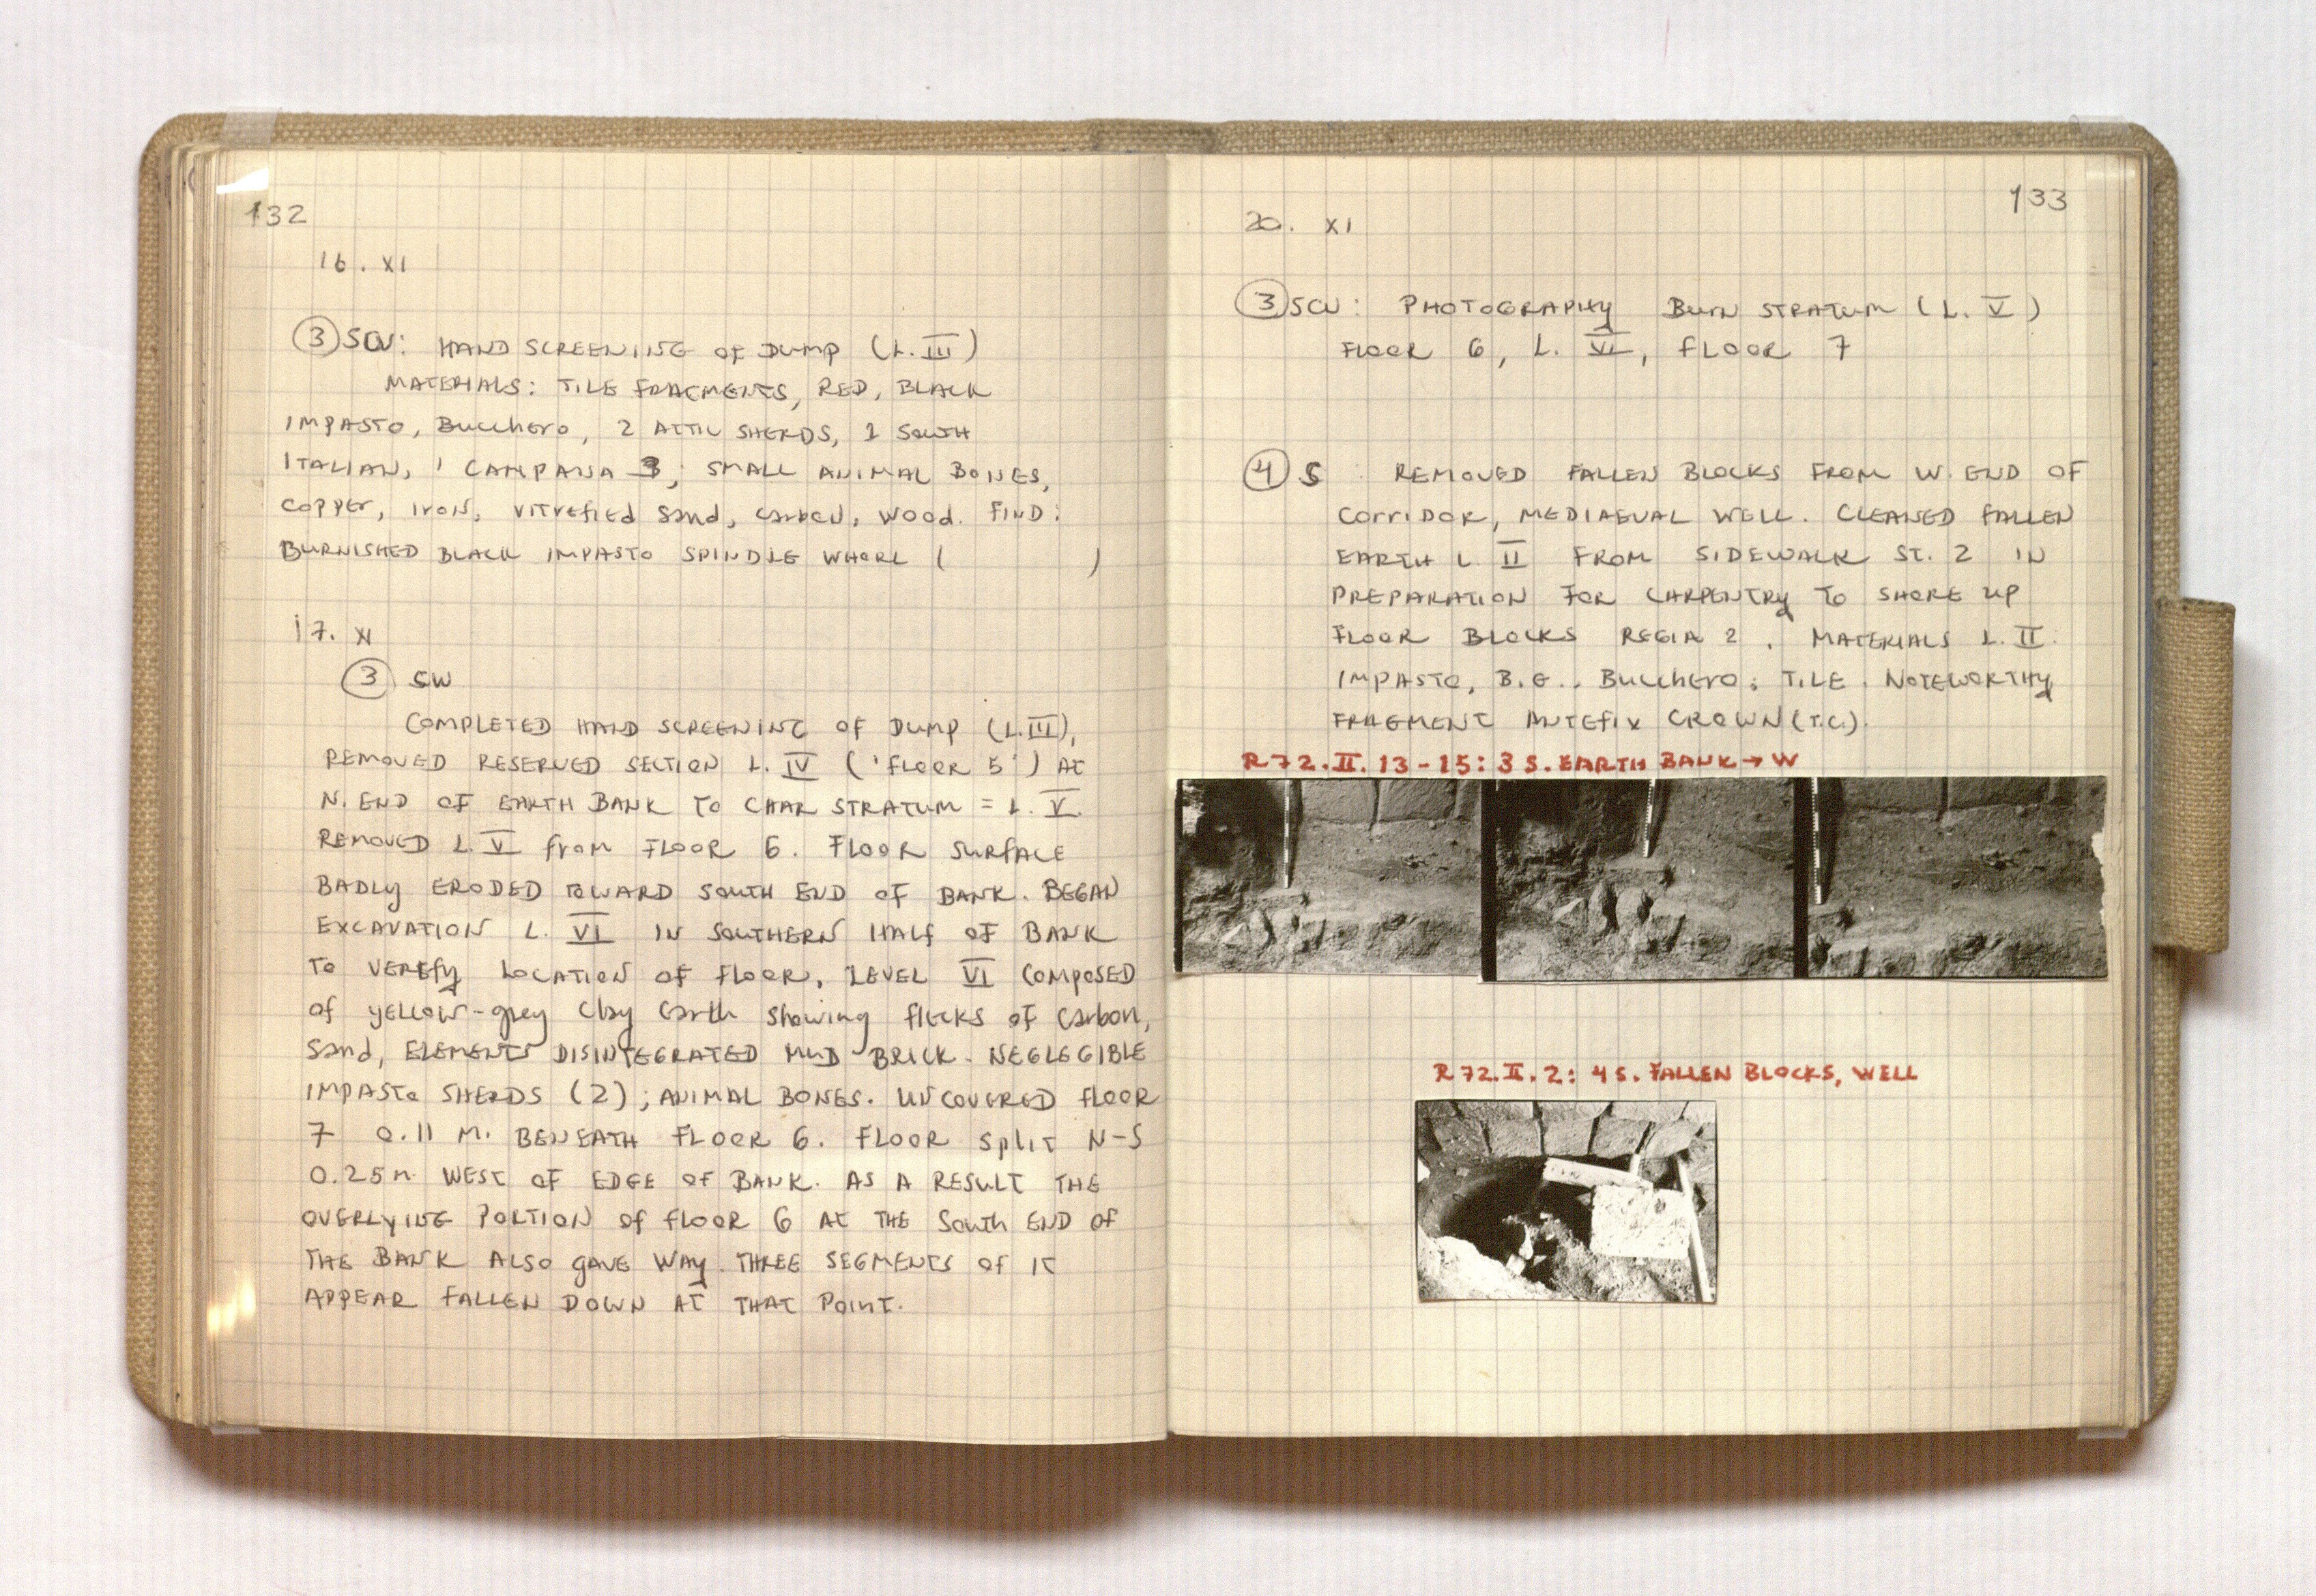 132
16. XI
3 SW: HAND SCREENING OF DUMP (L. III)
MATERIALS: TILE FRAGMENTS, RED, BLACK
IMPASTO, Bucchero, 2 ATTIC SHERDS, 1 SOUTH
ITALIAN, 1 CAMPANA B; SMALL ANIMAL BONES,
COPPER, IRON, VITREFIED SAND, CARBON, WOOD. FIND:
BURNISHED BLACK IMPASTO SPINDLE WHORL ( )
17. XI
3 SW
COMPLETED HAND SCREENING OF DUMP (L. III),
REMOVED RESERVED SECTION L. IV ('FLOOR 5') AT
N. END OF EARTH BANK TO CHAR STRATUM = L. V.
REMOVED L. V from FLOOR 6. FLOOR SURFACE
BADLY ERODED TOWARD SOUTH END OF BANK. BEGAN
EXCAVATION L. VI IN SOUTHERN HALF OF BANK
TO VEREFY LOCATION OF FLOOR. LEVEL VI COMPOSED
OF YELLOW-grey Clay Earth Showing flecks of Carbon,
Sand, ELEMENTS DISINTEGRATED MUD BRICK. NEGLEGIBLE
IMPASTO SHERDS (2); ANIMAL BONES. UNCOVERED FLOOR
7 0.11 M. BENEATH FLOOR 6. FLOOR SPLIT N-S
0.25 M. WEST OF EDGE OF BANK. AS A RESULT THE
OVERLYING PORTION OF FLOOR 6 AT THE SOUTH END OF
THE BANK ALSO GAVE WAY. THREE SEGMENTS OF IT
APPEAR FALLEN DOWN AT THAT POINT.
133
20. XI
3 SW: PHOTOGRAPHY BURN STRATUM (L. V)
FLOOR 6, L. VI, FLOOR 7
4 S REMOVED FALLEN BLOCKS FROM W. END OF
CORRIDOR, MEDIAEVAL WELL. CLEANED FALLEN
EARTH L. II FROM SIDEWALK ST. 2 IN
PREPARATION FOR CARPENTRY TO SHORE UP
FLOOR BLOCKS REGIA 2. MATERIALS L. II:
IMPASTO, B.G., BUCCHERO; TILE. NOTEWORTHY
FRAGMENT ANTEFIX CROWN (T.C.).
R 72. II. 13-15: 3 S. EARTH BANK → W
R 72. II. 2: 4 S. FALLEN BLOCKS, WELL